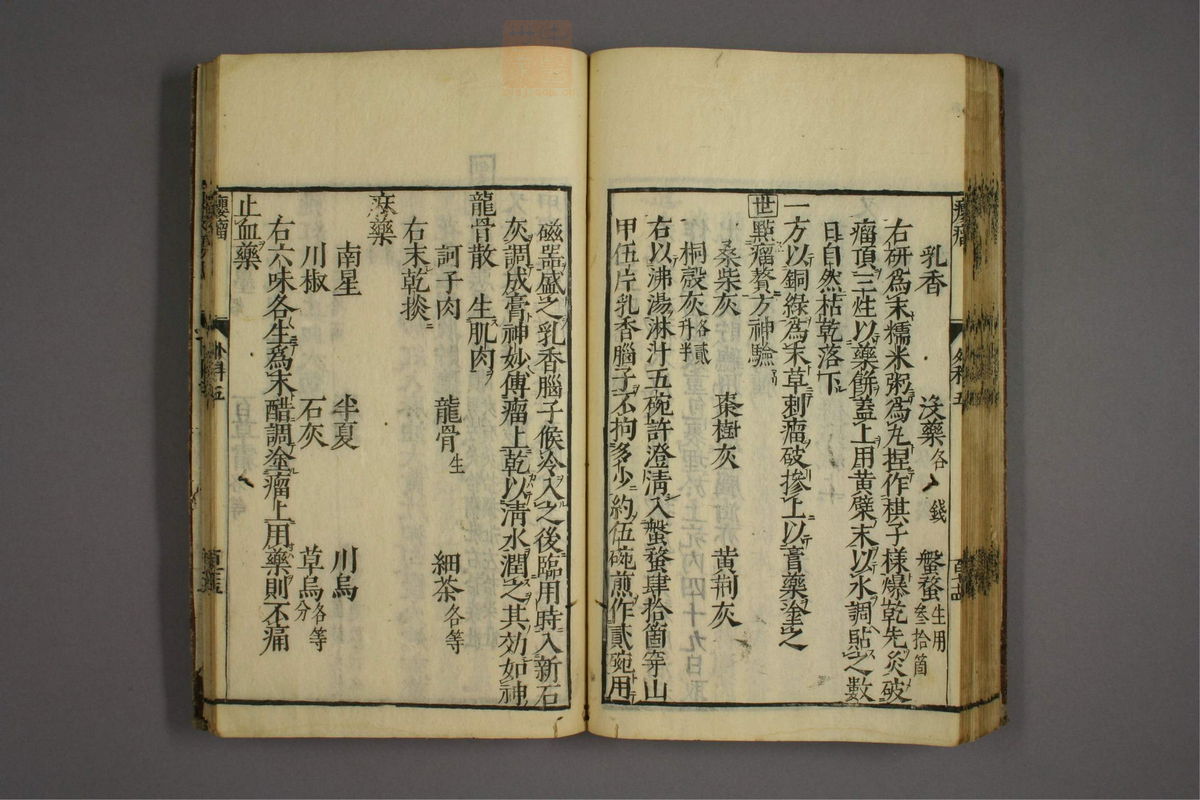 乳香 沒藥各一錢 盤蝥生用叄拾箇
右研爲末糯米粥爲丸捏作棋子樣曝乾先灸破
瘤頂三炷以藥餅蓋上用黄蘗末以水調貼之數
日自然枯乾落下
一方以銅綠爲末草刺瘤破摻上以膏藥塗之
世點瘤贅方神驗
桑柴灰 棗樹灰 黄荆灰
桐殼灰各貳升半
右以沸湯淋汁五碗許澄清入盤蝥肆拾箇穿山
甲伍片乳香腦子不拘多少約伍碗煎作貳碗用
磁器盛之乳香腦子候冷入之後臨用時入新石
灰調成膏神妙傅瘤上乾以清水潤之其効如神
龍骨散 生肌肉
訶子肉 龍骨生 細茶各等
右末乾掞
麻藥
南星 半夏 川烏
川椒 石灰 草烏各等分
右六味各生爲末醋調塗瘤上用藥則不痛
止血藥
癭瘤